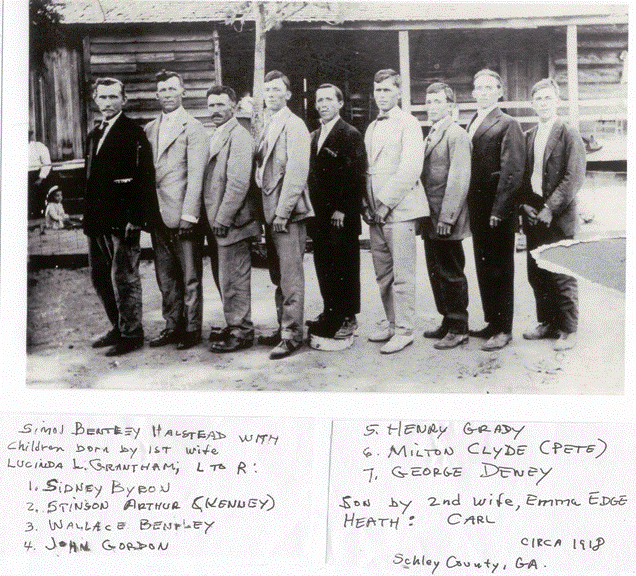 Simos Bentley Halstead with
children born by 1st wife
Lucinda L. Grantham; L to R:
1. Sidney Byron
2. Stinson Arthur (Kenney)
3. Wallace Bentley
4. John Gordon
5. Henry Grady
6. Milton Clyde (Pete)
7. George Dewey
Son by 2nd wife, Emma Edge
Heath: Carl
circa 1918
Schley County, GA.